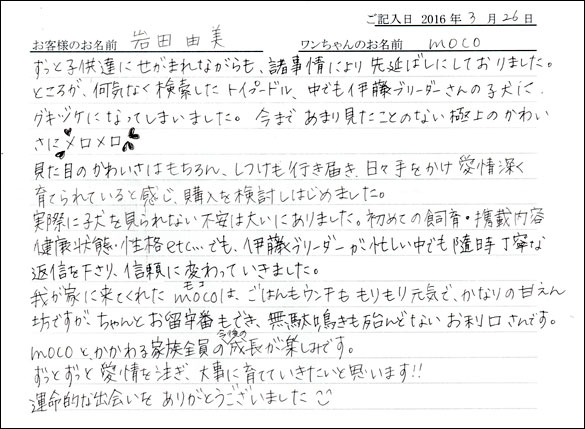 ご記入日 2016 年 3 月 26 日
お客様のお名前 岩田 由美 ワンちゃんのお名前 moco
ずっと子供達にせがまれながらも、諸事情により先延ばしにしておりました。
ところが、何気なく検索したトイプードル、中でも伊藤ブリーダーさんの子犬に
クギヅケになってしまいました。今まであまり見たことのない極上のかわい
さにメロメロ
見た目のかわいさはもちろん、しつけも行き届き、日々手をかけ愛情深く
育てられていると感じ、購入を検討しはじめました。
実際に子犬を見られない不安は大いにありました。初めての飼育・携載内容
健康状態・性格etc…でも、伊藤ブリーダーが忙しい中でも随時丁寧な
返信を下さり、信頼に変わっていきました。
我が家に来てくれたmoco(モコ)は、ごはんもウンチももりもり元気で、かなりの甘えん
坊ですが、ちゃんとお留守番もでき、無駄鳴きも殆んどないお利口さんです。
mocoとかかわる家族全員の今後の成長が楽しみです。
ずっとずっと愛情を注ぎ、大事に育てていきたいと思います!!
運命的な出会いをありがとうございました